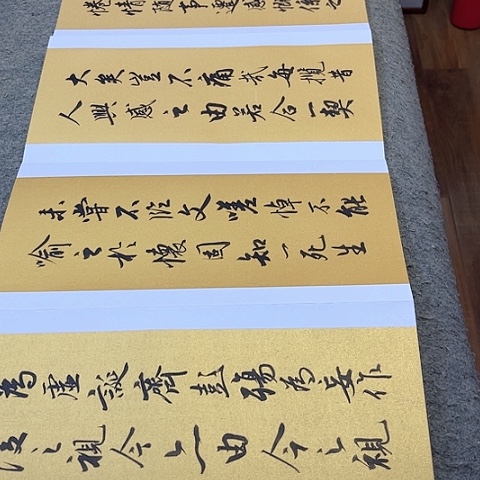 倦情隨事遷感慨係之
大矣豈不痛哉每攬昔
人興感之由若合一契
未嘗不臨文嗟悼不能
喻之於懷固知一死生
為虛誕齊彭殤為妄作
後之視今亦由今之視